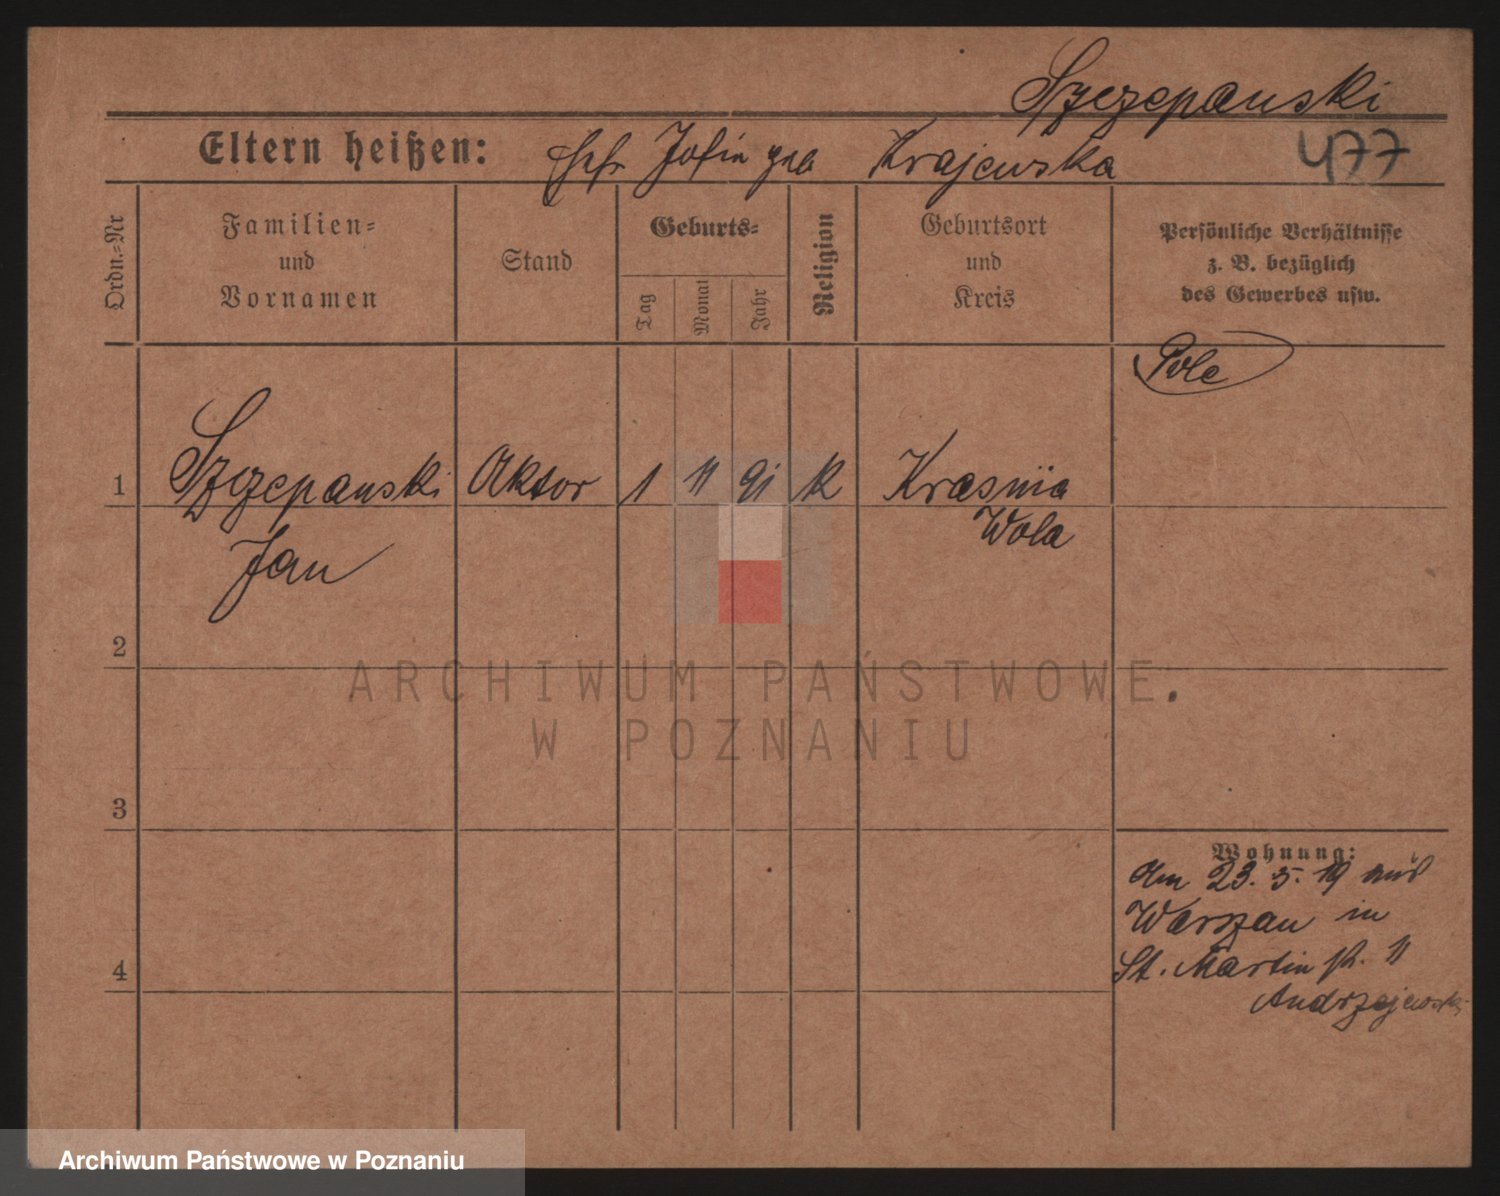 Szczepanski
Eltern heißen: geb Krajewska
477
Ordn.=Nr
Familien=
und
Vornamen
Stand
Geburts=
Tag
Monat
Jahr
Religion
Geburtsort
und
Kreis
Persönliche Verhältnisse
z. B. bezüglich
des Gewerbes usw.
Pole
1 Szczepanski Aktor 1 11 91 K Krasnia
Wola
Jan
2
ARCHIWUM PAŃSTWOWE
W POZNANIU
3
Wohnung:
Am 23. 5. 19 aus
Warszau in
4 St. Martin str. 11
Andrzejewski
Archiwum Państwowe w Poznaniu